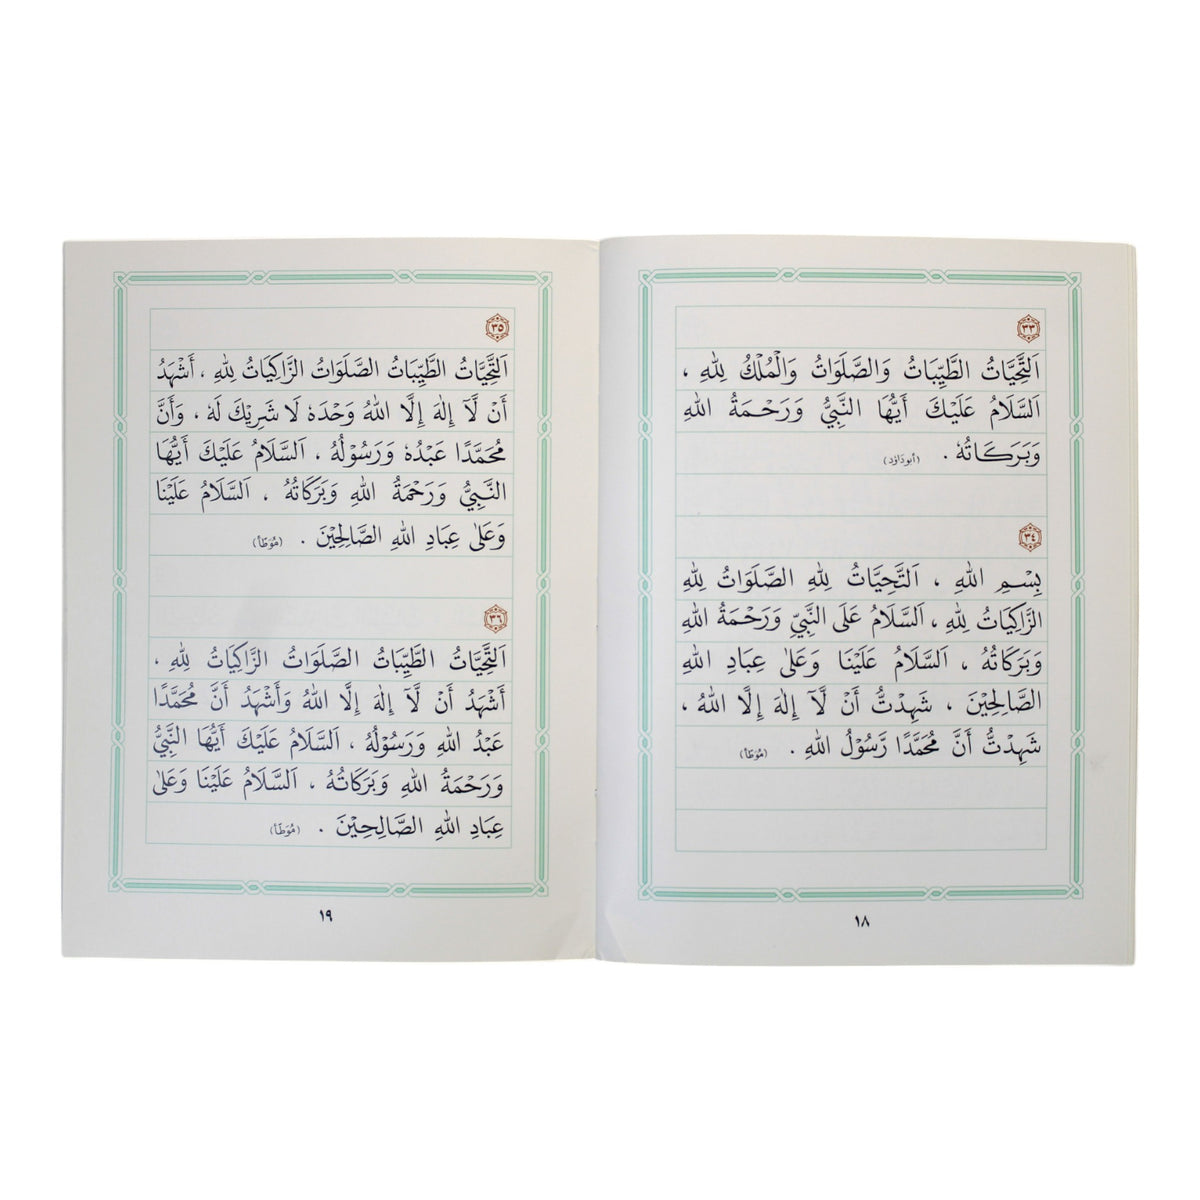 ٣٣
اَلتَّحِيَّاتُ الطَّيِّبَاتُ وَالصَّلَوَاتُ وَالْمُلْكُ لِلّٰهِ ،
اَلسَّلَامُ عَلَيْكَ أَيُّهَا النَّبِيُّ وَرَحْمَةُ اللهِ
وَبَرَكَاتُهٗ . (أبوداوٗد)
٣٤
بِسْمِ اللهِ ، اَلتَّحِيَّاتُ لِلّٰهِ الصَّلَوَاتُ لِلّٰهِ
الزَّاكِيَاتُ لِلّٰهِ ، اَلسَّلَامُ عَلَى النَّبِيِّ وَرَحْمَةُ اللهِ
وَبَرَكَاتُهُ ، اَلسَّلَامُ عَلَيْنَا وَعَلىٰ عِبَادِ اللهِ
الصَّالِحِيْنَ ، شَهِدْتُّ أَنْ لَّآ إِلٰهَ إِلَّا اللهُ ،
شَهِدْتُّ أَنَّ مُحَمَّدًا رَّسُوْلُ اللهِ . (مُوَطَأ)
١٨
٣٥
اَلتَّحِيَّاتُ الطَّيِّبَاتُ الصَّلَوَاتُ الزَّاكِيَاتُ لِلّٰهِ ، أَشْهَدُ
أَنْ لَّآ إِلٰهَ إِلَّا اللهُ وَحْدَهٗ لَا شَرِيْكَ لَهٗ ، وَأَنَّ
مُحَمَّدًا عَبْدُهٗ وَرَسُوْلُهُ ، اَلسَّلَامُ عَلَيْكَ أَيُّهَا
النَّبِيُّ وَرَحْمَةُ اللهِ وَبَرَكَاتُهُ ، اَلسَّلَامُ عَلَيْنَا
وَعَلىٰ عِبَادِ اللهِ الصَّالِحِيْنَ . (مُوَطَأ)
٣٦
اَلتَّحِيَّاتُ الطَّيِّبَاتُ الصَّلَوَاتُ الزَّاكِيَاتُ لِلّٰهِ ،
أَشْهَدُ أَنْ لَّآ إِلٰهَ إِلَّا اللهُ وَأَشْهَدُ أَنَّ مُحَمَّدًا
عَبْدُ اللهِ وَرَسُوْلُهُ ، اَلسَّلَامُ عَلَيْكَ أَيُّهَا النَّبِيُّ
وَرَحْمَةُ اللهِ وَبَرَكَاتُهُ ، اَلسَّلَامُ عَلَيْنَا وَعَلىٰ
عِبَادِ اللهِ الصَّالِحِيْنَ . (مُوَطَأ)
١٩